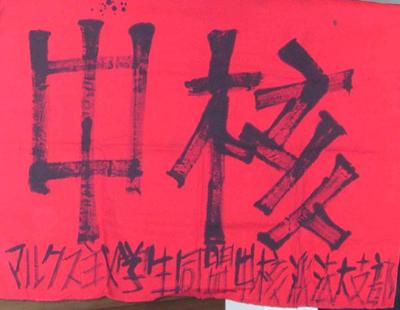 中核
マルクス主义学生同盟中核派法大支部